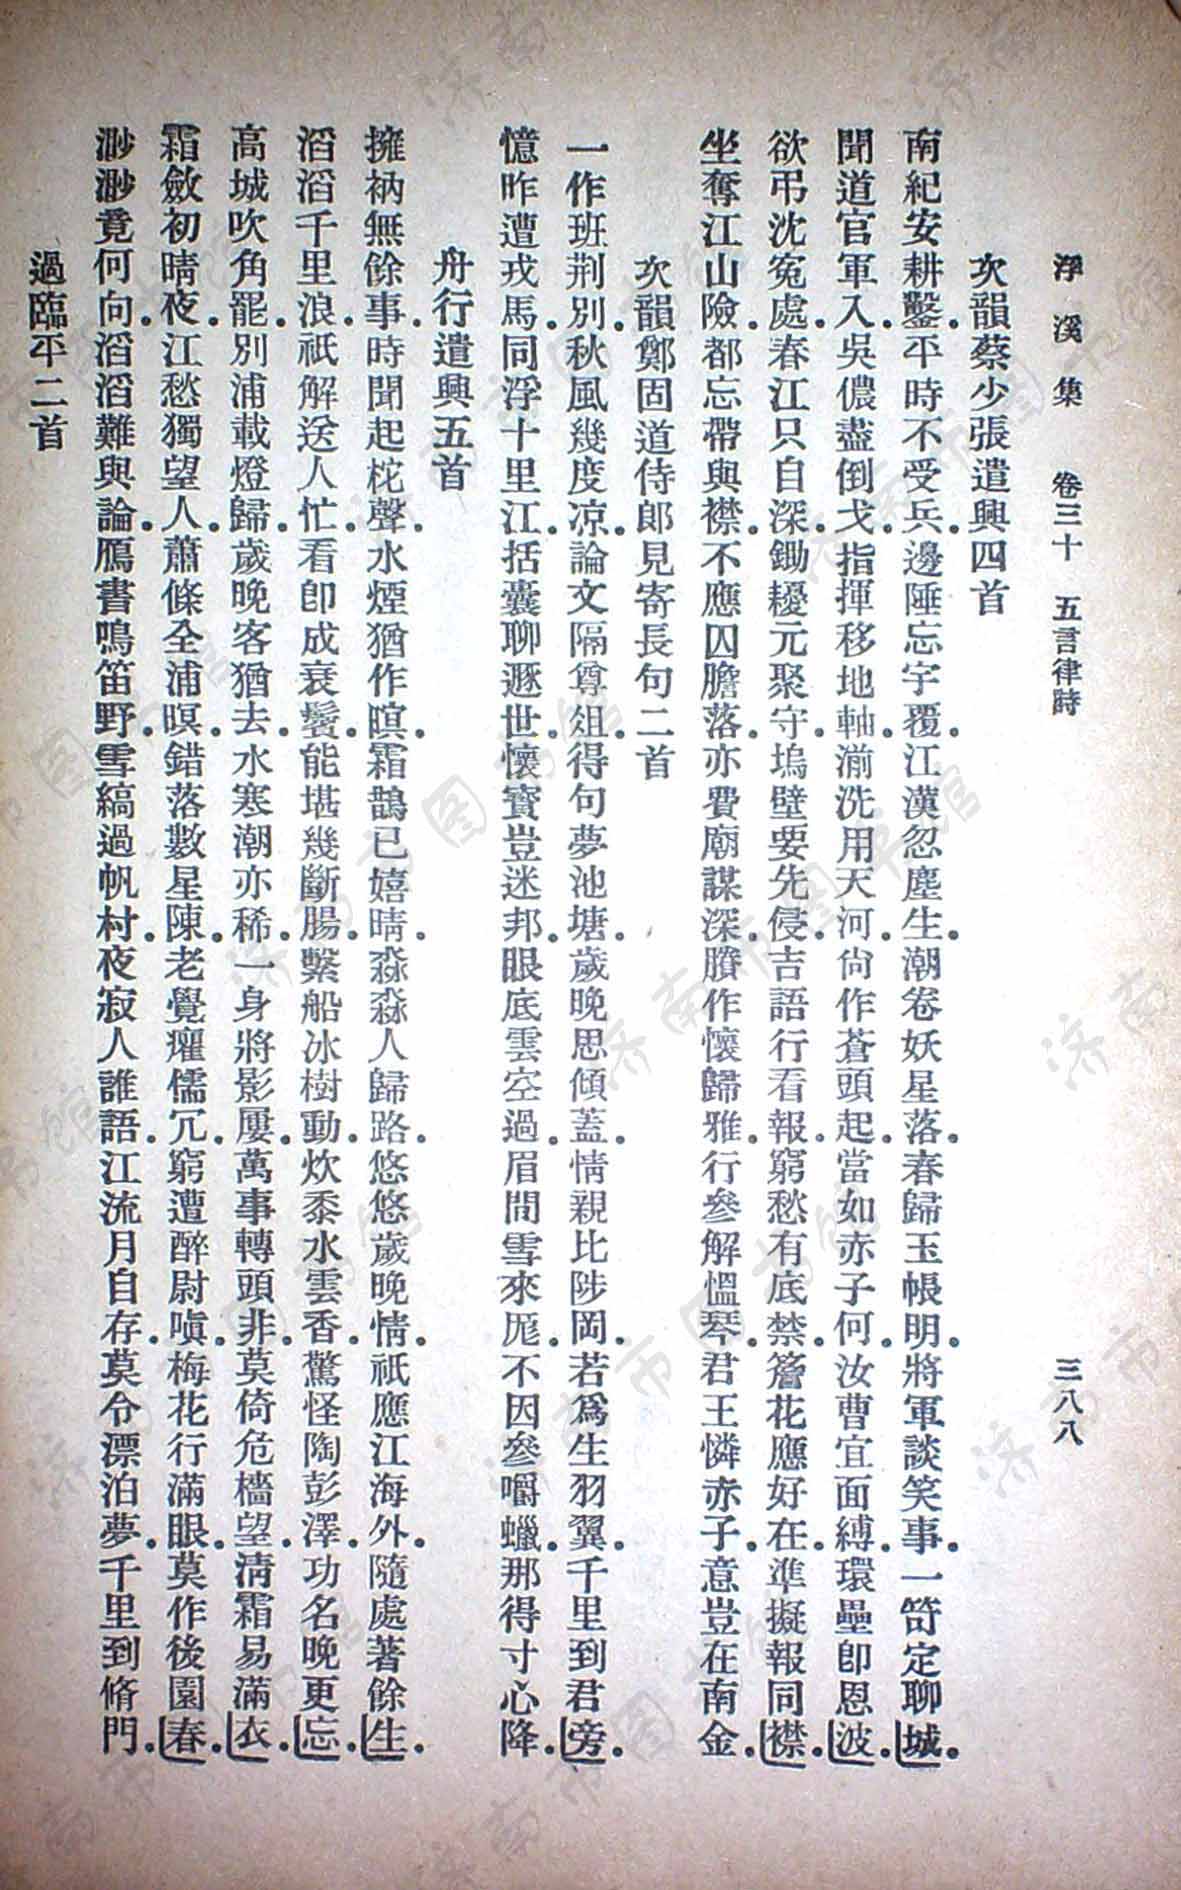 浮溪集　卷三十　五言律詩　三八八
次韻蔡少張遣興四首
南紀安耕鑿。平時不受兵。邊陲忘字覆。江漢忽塵生。潮卷妖星落。春歸玉帳明。將軍談笑事。一笴定聊城。
聞道官軍入。吳儂盡倒戈。指揮移地軸。湔洗用天河。尙作蒼頭起。當如赤子何。汝曹宜面縛。環壘卽恩波。
欲弔沈冤處。春江只自深。鋤耰元聚守。塢壁要先侵。吉語行看報。窮愁有底禁。簷花應好在。準擬報同襟。
坐奪江山險。都忘帶與襟。不應囚膽落。亦費廟謀深。賸作懷歸雅。行參解慍琴。君王憐赤子。意豈在南金。
次韻鄭固道侍郎見寄長句二首
一作班荆別。秋風幾度凉。論文隔尊俎。得句夢池塘。歲晚思傾蓋。情親比陟岡。若爲生羽翼。千里到君旁。
憶昨遭戎馬。同浮十里江。括囊聊遯世。懷寶豈迷邦。眼底雲空過。眉間雪來厖。不因參嚼蠟。那得寸心降。
舟行遣興五首
擁衲無餘事。時聞起柁聲。水煙猶作暝。霜鵲已嬉晴。淼淼人歸路。悠悠歲晚情。祇應江海外。隨處著餘生。
滔滔千里浪。祇解送人忙。看卽成衰鬢。能堪幾斷腸。繫船冰樹動。炊黍水雲香。驚怪陶彭澤。功名晚更忘。
高城吹角罷。別浦載燈歸。歲晚客猶去。水寒潮亦稀。一身將影屢。萬事轉頭非。莫倚危檣望。淸霜易滿衣。
霜斂初晴夜。江愁獨望人。蕭條全浦暝。錯落數星陳。老覺癯儒冗。窮遭醉尉嗔。梅花行滿眼。莫作後園春。
渺渺竟何向。滔滔難與論。鴈書鳴笛野。雪縞過帆村。夜寂人誰語。江流月自存。莫令漂泊夢。千里到脩門。
過臨平二首